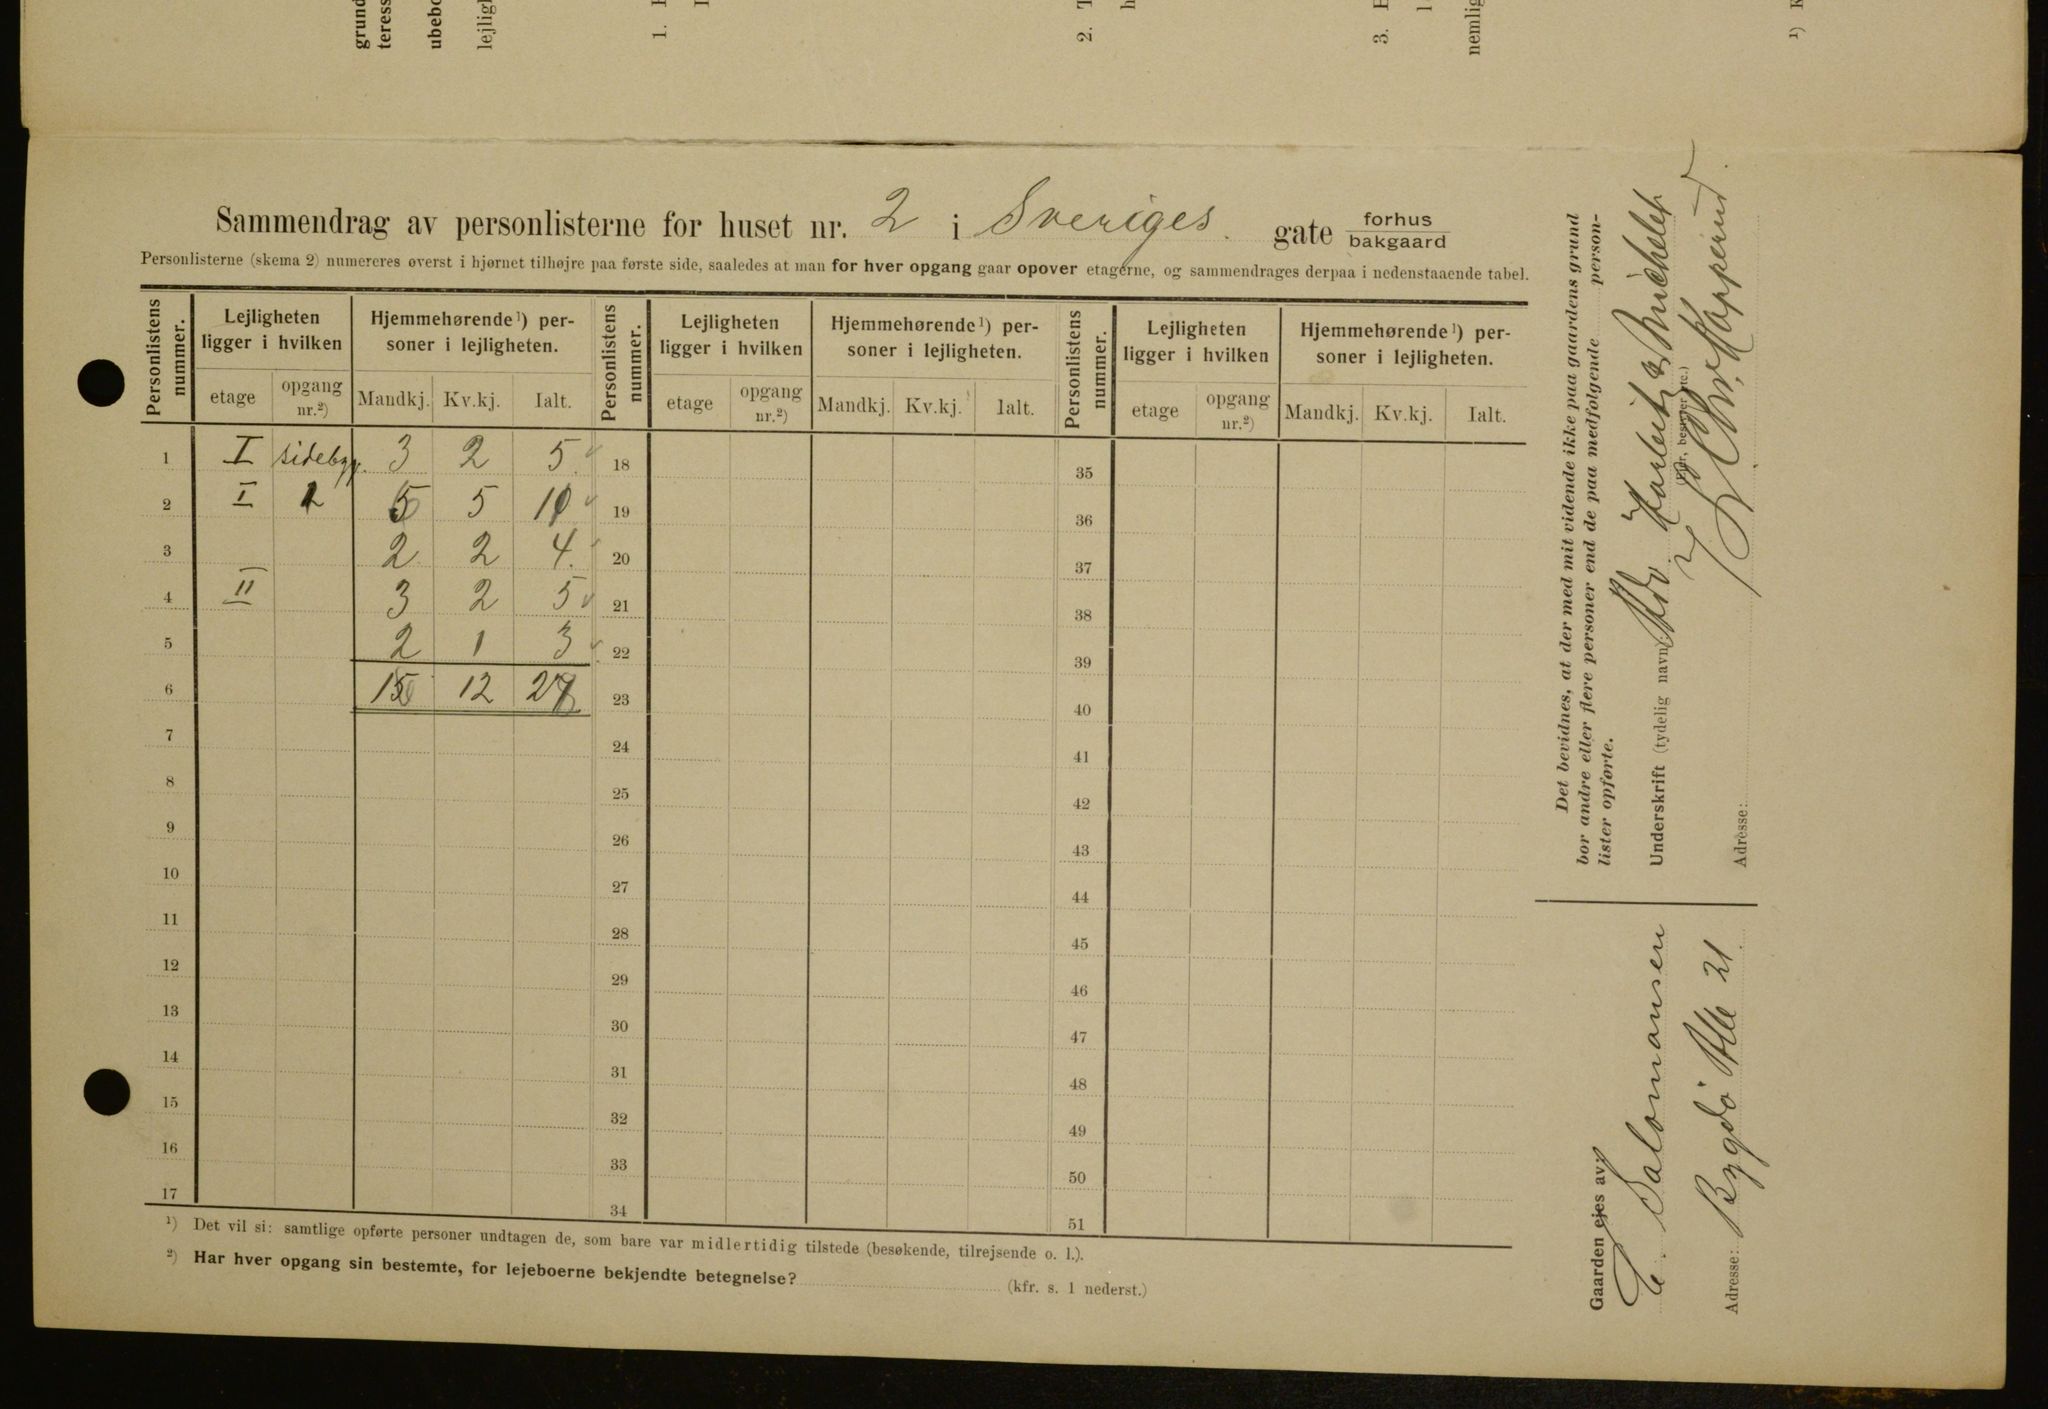 grund
teress
ubebo
lejligh
1.
2. T
h
3. E
nemlig
¹) K
Sammendrag av personlisterne for huset nr. 2 i Sveriges gate forhus
bakgaard
Personlisterne (skema 2) numereres øverst i hjørnet tilhøjre paa første side, saaledes at man for hver opgang gaar opover etagerne, og sammendrages derpaa i nedenstaaende tabel.
Personlistens nummer. Lejligheten ligger i hvilken Hjemmehørende ¹) personer i lejligheten. Personlistens nummer. Lejligheten ligger i hvilken Hjemmehørende ¹) personer i lejligheten. Personlistens nummer. Lejligheten ligger i hvilken Hjemmehørende ¹) personer i lejligheten.
etage opgang nr.²) Mandkj. Kv.kj. Ialt. etage opgang nr.²) Mandkj. Kv.kj. Ialt. etage opgang nr.²) Mandkj. Kv.kj. Ialt.
1 I sidebyg. 3 2 5 18 35
2 I 1 5 5 10 19 36
3 2 2 4 20 37
4 II 3 2 5 21 38
5 2 1 3 22 39
6 15 12 27 23 40
7 24 41
8 25 42
9 26 43
10 27 44
11 28 45
12 29 46
13 30 47
14 31 48
15 32 49
16 33 50
17 34 51
¹) Det vil si: samtlige opførte personer undtagen de, som bare var midlertidig tilstede (besøkende, tilrejsende o. l.).
²) Har hver opgang sin bestemte, for lejeboerne bekjendte betegnelse?
(kfr. s. 1 nederst.)
Det bevidnes, at der med mit vidende ikke paa gaardens grund
bor andre eller flere personer end de paa medfølgende person-
lister opførte.
Underskrift (tydelig navn) Adv. Harbitz & Michelet
(Eier, bestyrer etc.)
Chr. Kopperud
Adresse:
Gaarden ejes av:
E. Salomansen
Adresse: Bygdö Alle 21